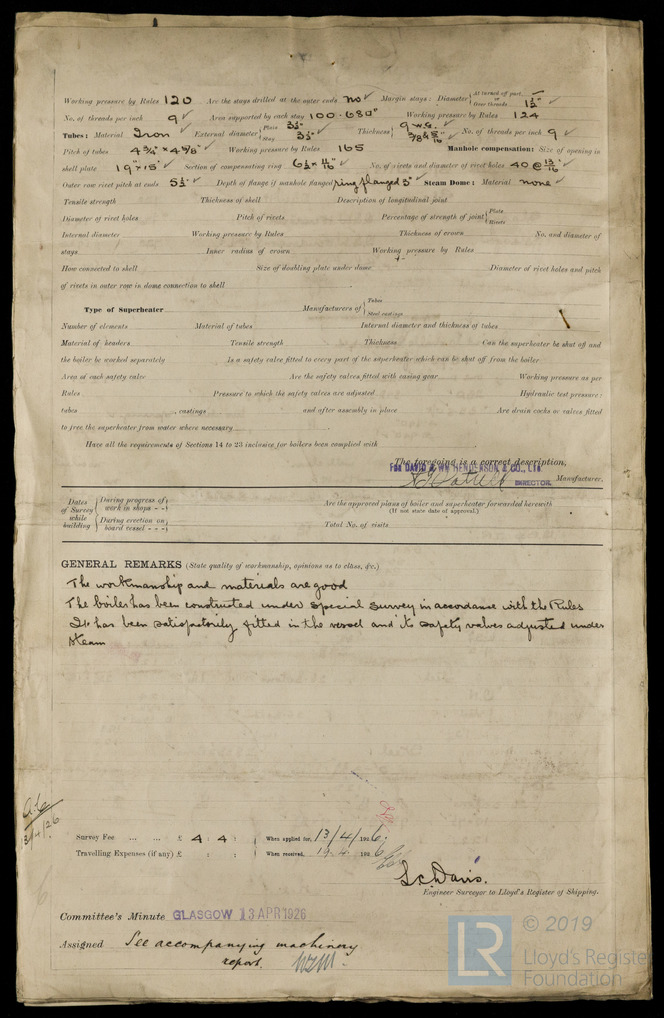 Working pressure by Rules 120 Are the stays drilled at the outer ends no ✓ Margin stays: Diameter { At turned off part, or Over threads 1½" ✓
No. of threads per inch 9 ✓ Area supported by each stay 100.680" Working pressure by Rules 124
Tubes: Material Iron ✓ External diameter { Plain 3½" Stay 3½" ✓ Thickness { 9 W.G. ✓ 3/8 & 5/16 ✓ No. of threads per inch 9 ✓
Pitch of tubes 4¾" × 4⅝" ✓ Working pressure by Rules 165 Manhole compensation: Size of opening in
shell plate 19" × 15" ✓ Section of compensating ring 6½ × 11/16" ✓ No. of rivets and diameter of rivet holes 40 @ 13/16 ✓
Outer row rivet pitch at ends 5½" ✓ Depth of flange if manhole flanged ring flanged 3" ✓ Steam Dome: Material none ✓
Tensile strength Thickness of shell Description of longitudinal joint
Diameter of rivet holes Pitch of rivets Percentage of strength of joint { Plate Rivets
Internal diameter Working pressure by Rules Thickness of crown No. and diameter of
stays Inner radius of crown Working pressure by Rules
How connected to shell Size of doubling plate under dome Diameter of rivet holes and pitch
of rivets in outer row in dome connection to shell
Type of Superheater Manufacturers of { Tubes Steel castings
Number of elements Material of tubes Internal diameter and thickness of tubes
Material of headers Tensile strength Thickness Can the superheater be shut off and
the boiler be worked separately Is a safety valve fitted to every part of the superheater which can be shut off from the boiler
Area of each safety valve Are the safety valves fitted with easing gear Working pressure as per
Rules Pressure to which the safety valves are adjusted Hydraulic test pressure:
tubes , castings and after assembly in place Are drain cocks or valves fitted
to free the superheater from water where necessary
Have all the requirements of Sections 14 to 23 inclusive for boilers been complied with
The foregoing is a correct description,
FOR DAVID & WM HENDERSON & CO., LTD.
DIRECTOR. Manufacturer.
Dates of Survey while building { During progress of work in shops - - { During erection on board vessel - - -
Are the approved plans of boiler and superheater forwarded herewith
(If not state date of approval.)
Total No. of visits
GENERAL REMARKS (State quality of workmanship, opinions as to class, &c.)
The workmanship and materials are good
The boiler has been constructed under special survey in accordance with the Rules
It has been satisfactorily fitted in the vessel and its safety valves adjusted under
steam
13/4/26
Survey Fee ... ... £ 4 : 4 : When applied for, 13/4/1926.
Travelling Expenses (if any) £ : : When received, 19.4.1926
S. C. Davis.
Engineer Surveyor to Lloyd's Register of Shipping.
Committee's Minute GLASGOW 13 APR 1926
Assigned See accompanying machinery
report.
© 2019
LR Lloyd's Register
Foundation